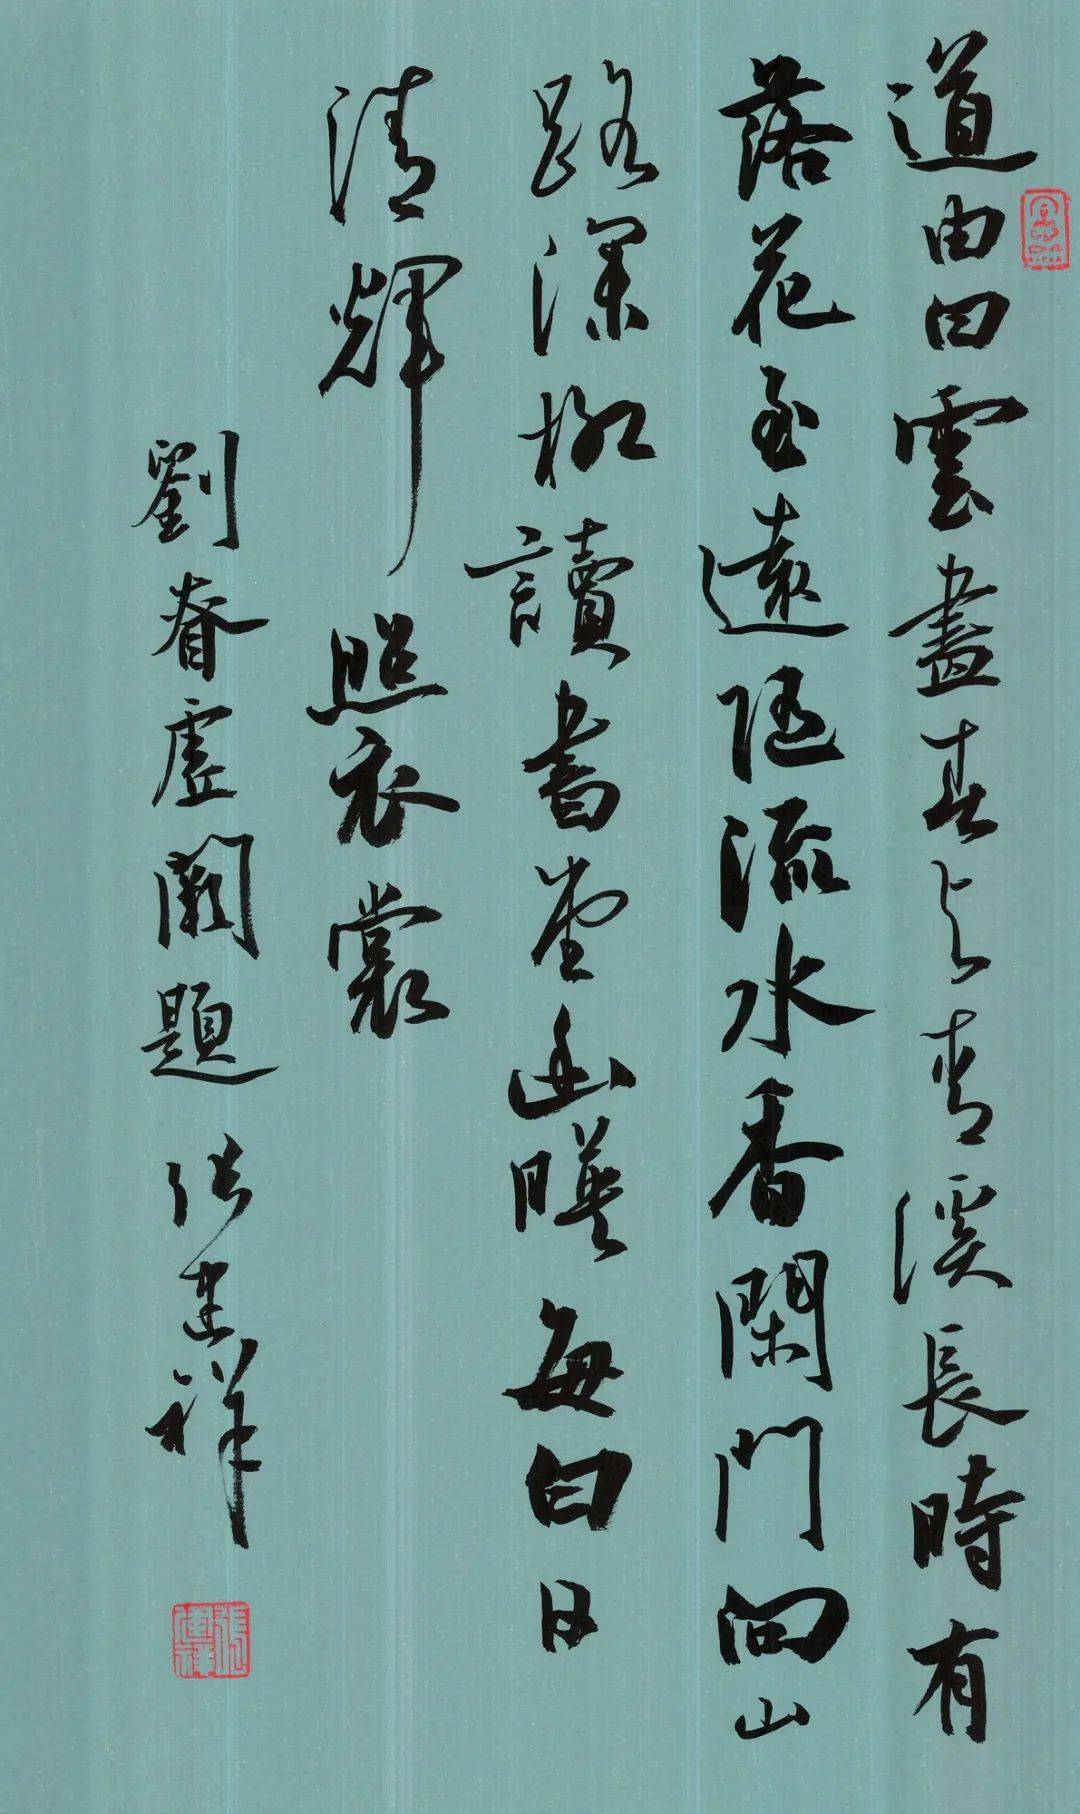 道由白雲盡春与青溪長時有
落花至遠隨流水香閑門向山
路深柳讀書堂幽暎每白日
清輝照衣裳
劉眘虛闕題 張建祥
張建祥